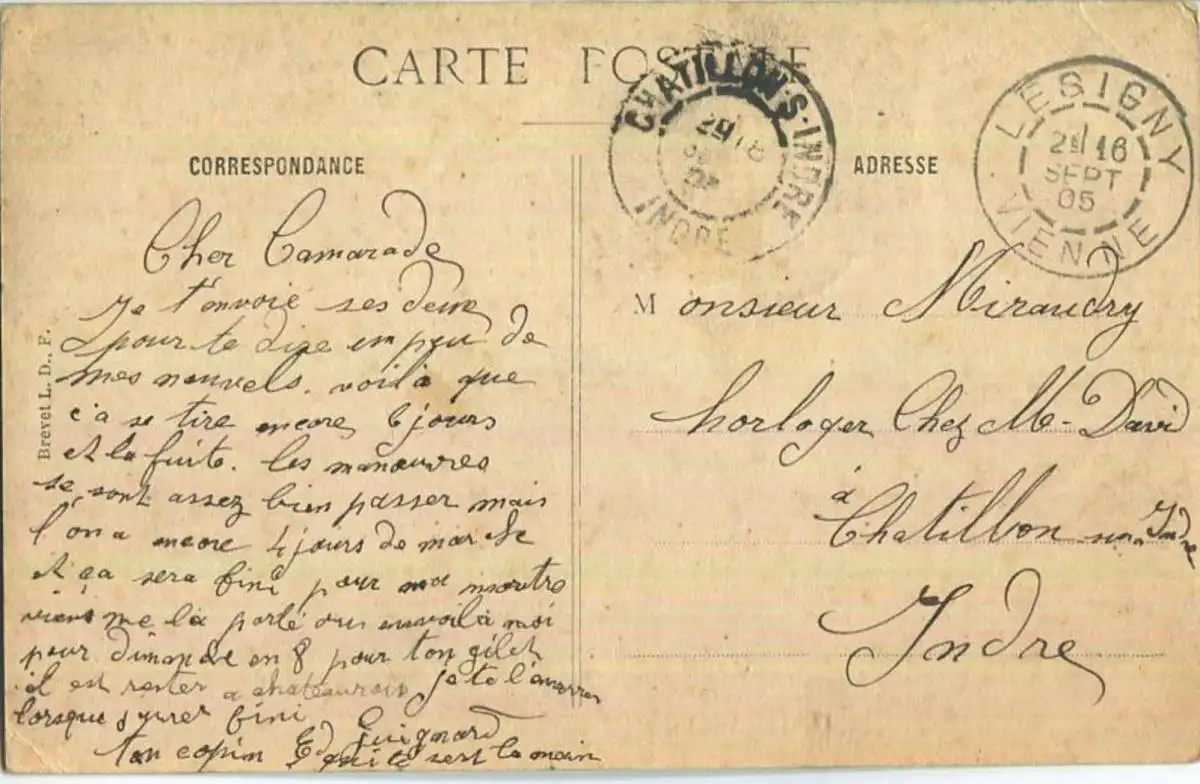 CARTE POSTALE
CORRESPONDANCE
ADRESSE
CHATILLON-S-INDRE
INDRE
LESIGNY
2E/16
SEPT
05
VIENNE
Brevet L. D., F.
Cher Camarade
Je t'envoie ses deux
pour te dire un peu de
mes nouvels. voila que
c'a se tire encore 6 jours
et la fuite. les manœuvres
se sont assez bien passer mais
l'on a encore 4 jours de marche
et ça sera fini pour ma montre
viens me la porté ou envoila moi
pour dimanche en 8 pour ton gilet
il est rester a chateauroux je te l'
lorsque fini
ton copin Ed Guignard
qui te sert la main
Monsieur Miraudry
horloger Chez Mr David
à
Chatillon sur Indre
Indre